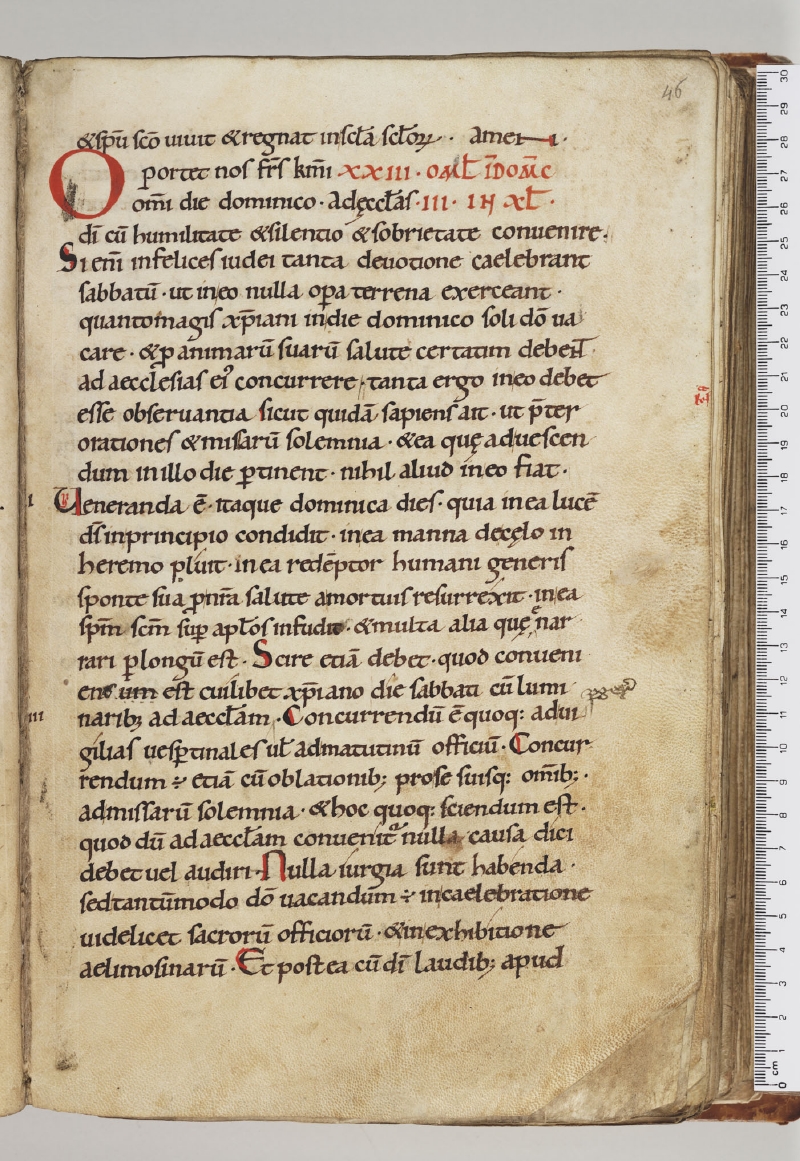 46
&spū scō uiuit & regnat in scła scłoꝝ · amen ·
Oportet nos fr̄s km̄i · XXIII · OML̄ ĪDOM̄C
om̄i die dominico · Ad ęccłas · III · IN XL̄ ·
dī cū humilitate & silentio & sobrietate conuenire ·
Si enī infelices iudei tanta deuotione caelebrant
sabbatū · ut in eo nulla oꝑa terrena exerceant ·
quanto magis xp̄iani in die dominico soli dō ua
care · & ꝓ animarū suarū salute certatim debent
ad aecclesias ei᾽ concurrere · tanta ergo in eo debet
esse obseruantia sicut quidā sapiens ait · ut p̄ter
orationes & missarū solemnia · & ea quę ad uescen
dum in illo die ꝑtinent · nihil aliud in eo fiat ·
I
Ueneranda ē · itaque dominica dies · quia in ea lucē
ds̄ in principio condidit · in ea manna de cęlo in
heremo pluit · in ea redēptor humani generis
sponte sua ꝓ nr̄a salute a mortuis resurrexit · in ea
spm̄ scm̄ suꝑ apłos infudit · & multa alia quę nar
rari ꝑ longū est · Scire etiā debet · quod conueni
ens est cuilibet xp̄iano die sabbati cū lumi
III
narib; ad aeccłam · Concurrendū ē quoq: ad ui
gilias uesꝑtinales uł ad matutinū officiū · Concur
rendum ÷ etiā cū oblationib; pro se suisq: om̄ib; ·
ad missarū solemnia · & hoc quoq: sciendum est ·
quod dū ad aeccłam conuenit᾽ nulla causa dici
debet uel audiri · Nulla iurgia sunt habenda ·
sed tantūmodo dō uacandum ÷ in caelebratione
uidelicet sacrorū officiorū · & in exhibitione
aelimosinarū · Et postea cū dī laudib; apud